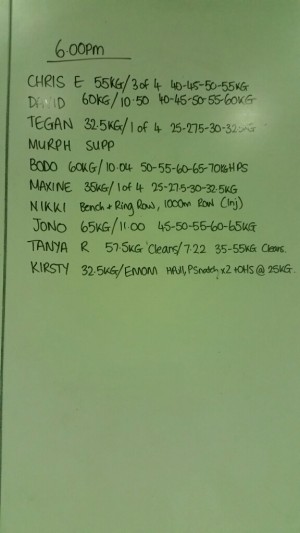 6.00pm
CHRIS E 55KG/3 of 4 40-45-50-55KG
DAVID 60KG/10.50 40-45-50-55-60KG
TEGAN 32.5KG/1 of 4 25-27.5-30-32.5KG
MURPH SUPP
BODO 60KG/10.04 50-55-60-65-70KG HPS
MAXINE 35KG/1 of 4 25-27.5-30-32.5KG
NIKKI Bench + Ring Row, 1000m Row (Inj)
JONO 65KG/11.00 45-50-55-60-65KG
TANYA R 57.5KG Cleans/7.22 35-55KG Cleans.
KIRSTY 32.5KG/EMOM HPull, PSnatch x2 +OHS @ 25KG.